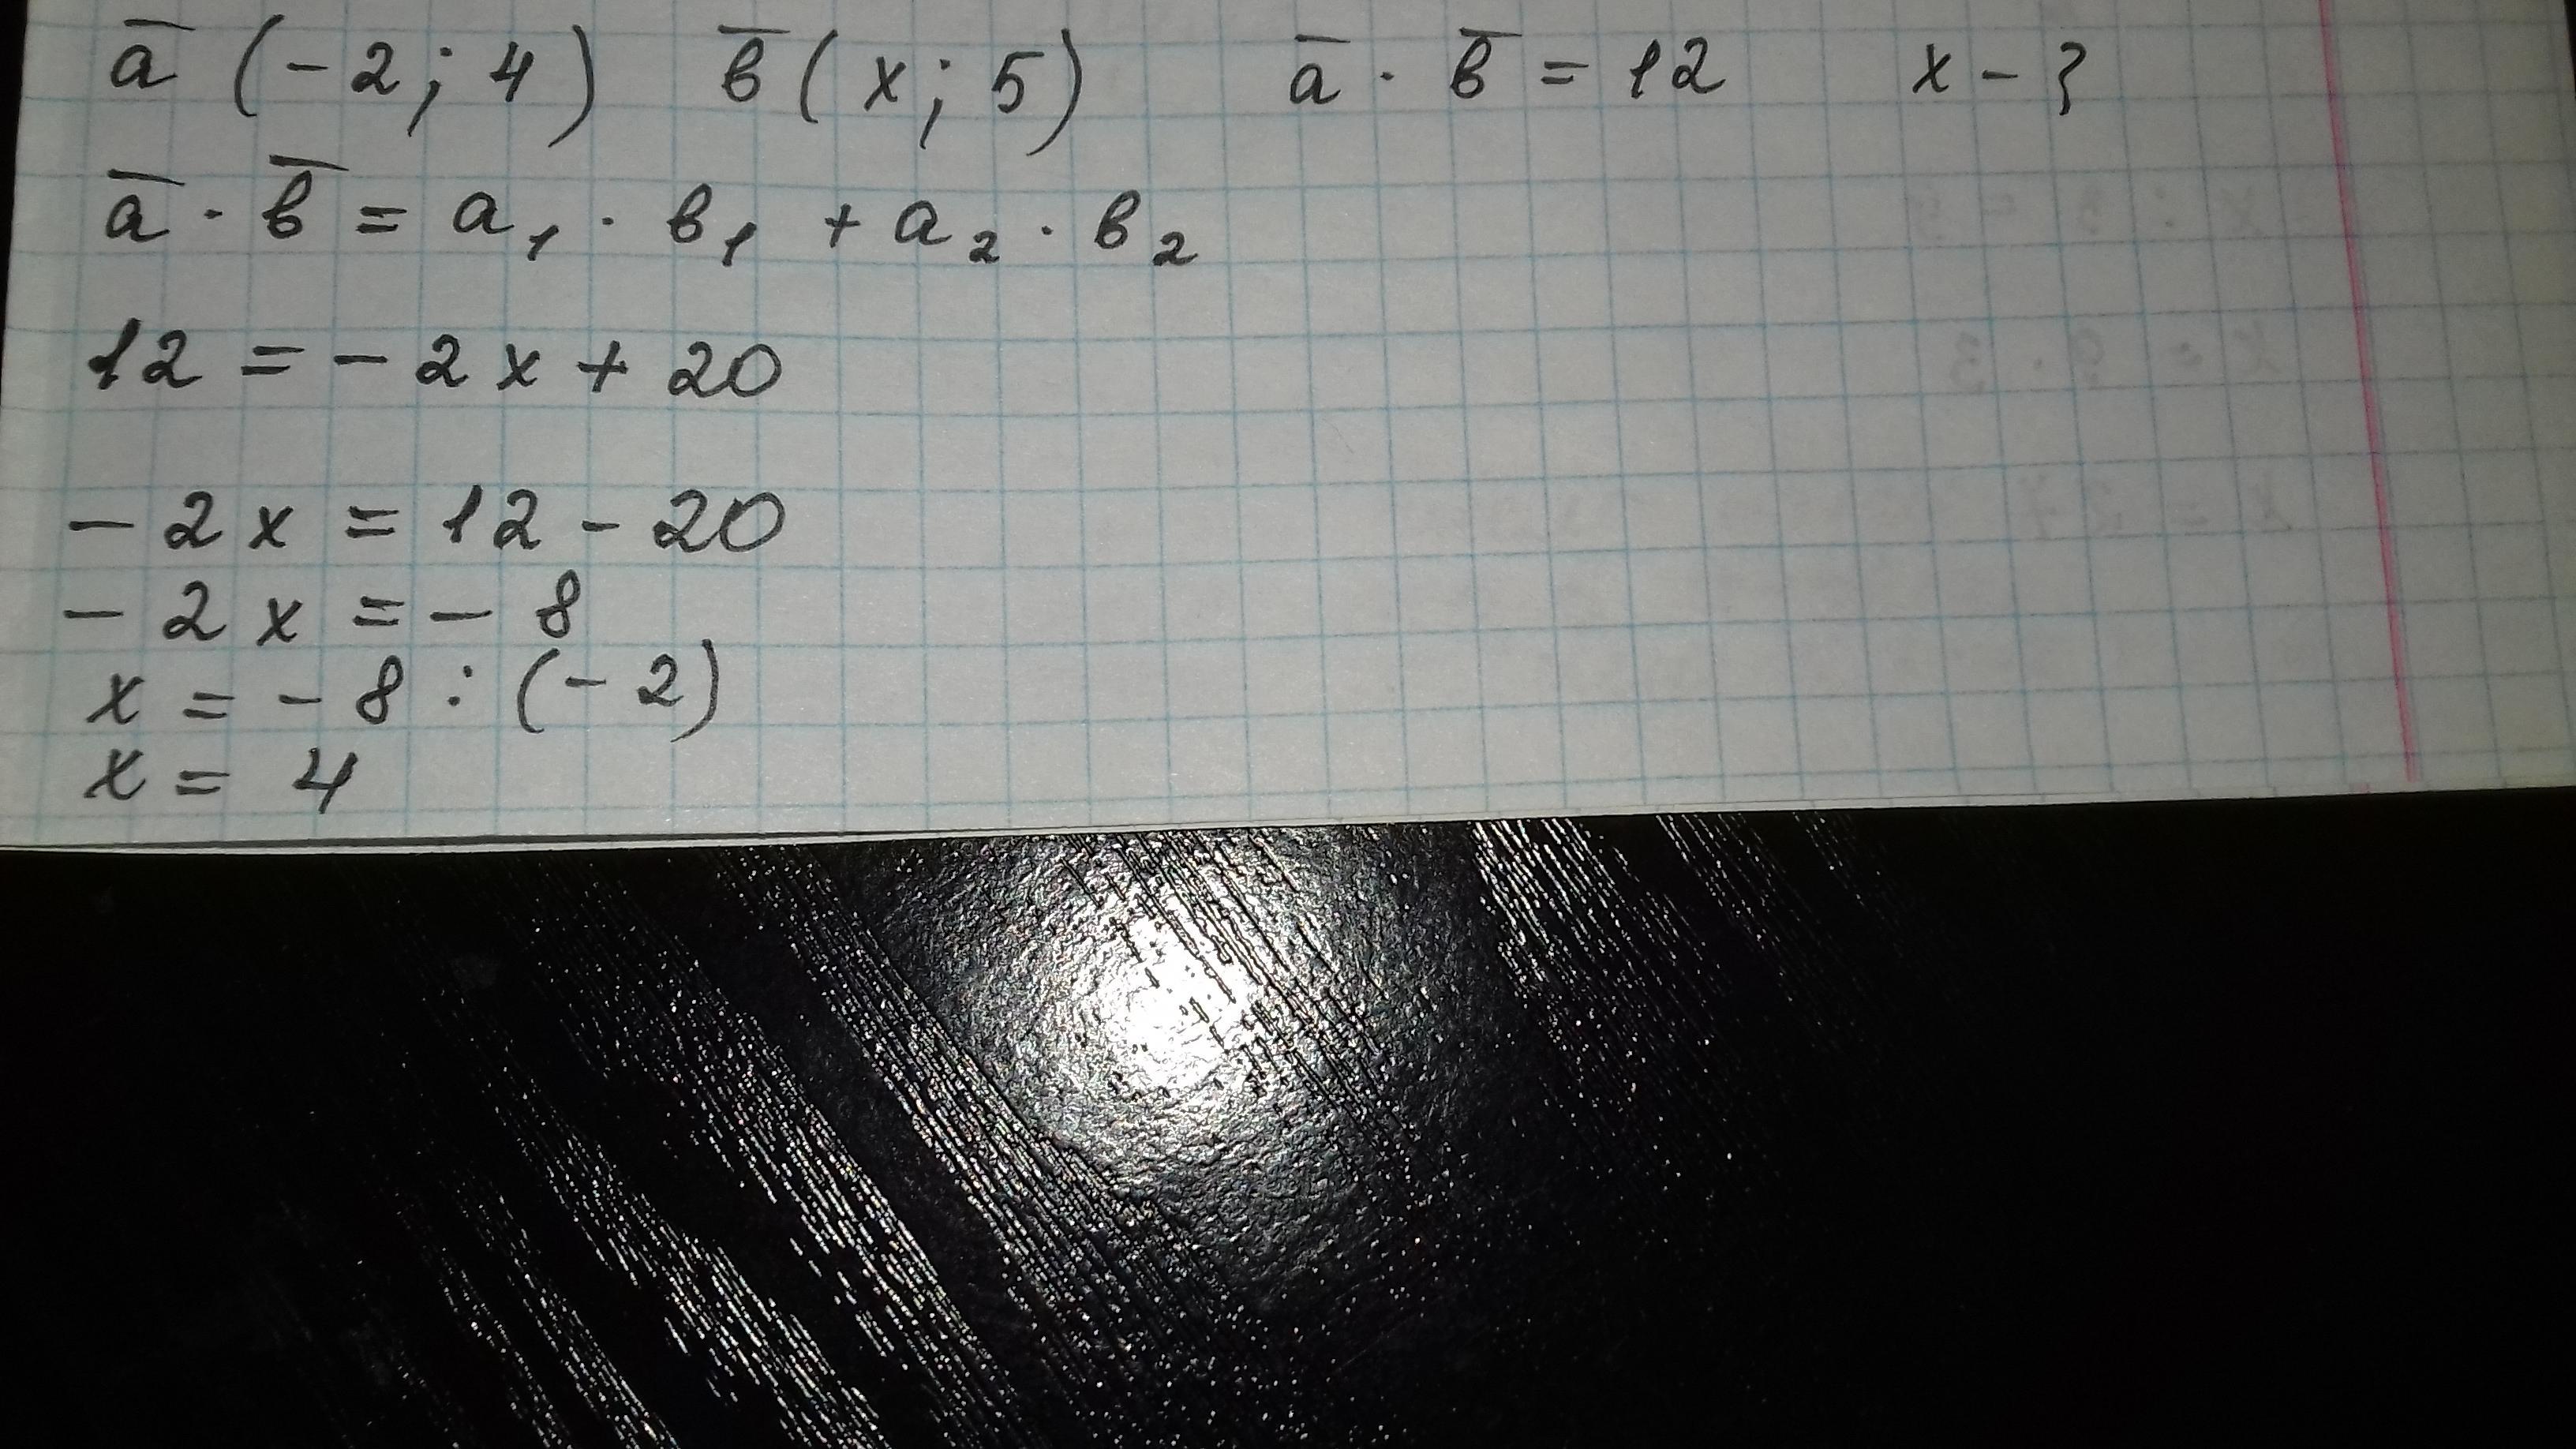 a̅ (-2; 4) в̅ (x; 5) a̅ · в̅ = 12 x - ?
a̅ · в̅ = a₁ · в₁ + a₂ · в₂
12 = - 2x + 20
- 2x = 12 - 20
- 2x = - 8
x = - 8 : (- 2)
x = 4